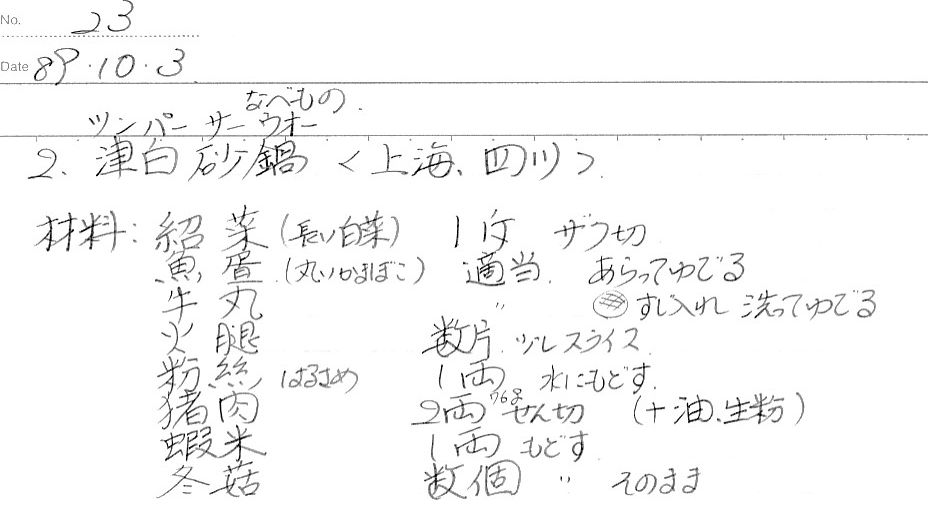 No. 23
Date 89・10・3
なべもの
ツンパー サー ウオー
2. 津白 砂鍋 <上海、四川>
材料: 紹 菜 (長い白菜) 1斤 ザク切
魚 蛋 (丸いかまぼこ) 適当. あらってゆでる
牛 丸 〃 すじ入れ 洗ってゆでる
火 腿 数片 スライス
粉 絲 はるさめ 1両 水にもどす.
猪 肉 2両 76g せん切 (+油、生粉)
蝦 米 1両 もどす
冬 菇 数個 〃 そのまま